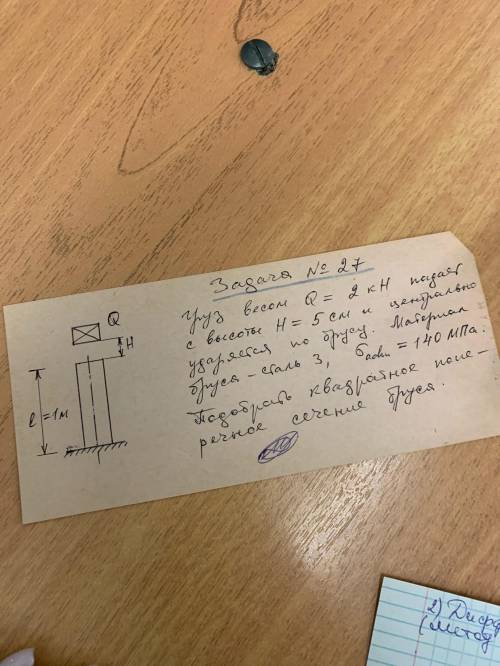 Задача № 27
Груз весом Q = 2 кН падает
с высоты H = 5 см и центрально
ударяется по брусу. Материал
бруса – сталь 3, бadm = 140 МПа.
Подобрать квадратное попе-
речное сечение бруса.
Q
H
l = 1м
2) Дифф
(метод